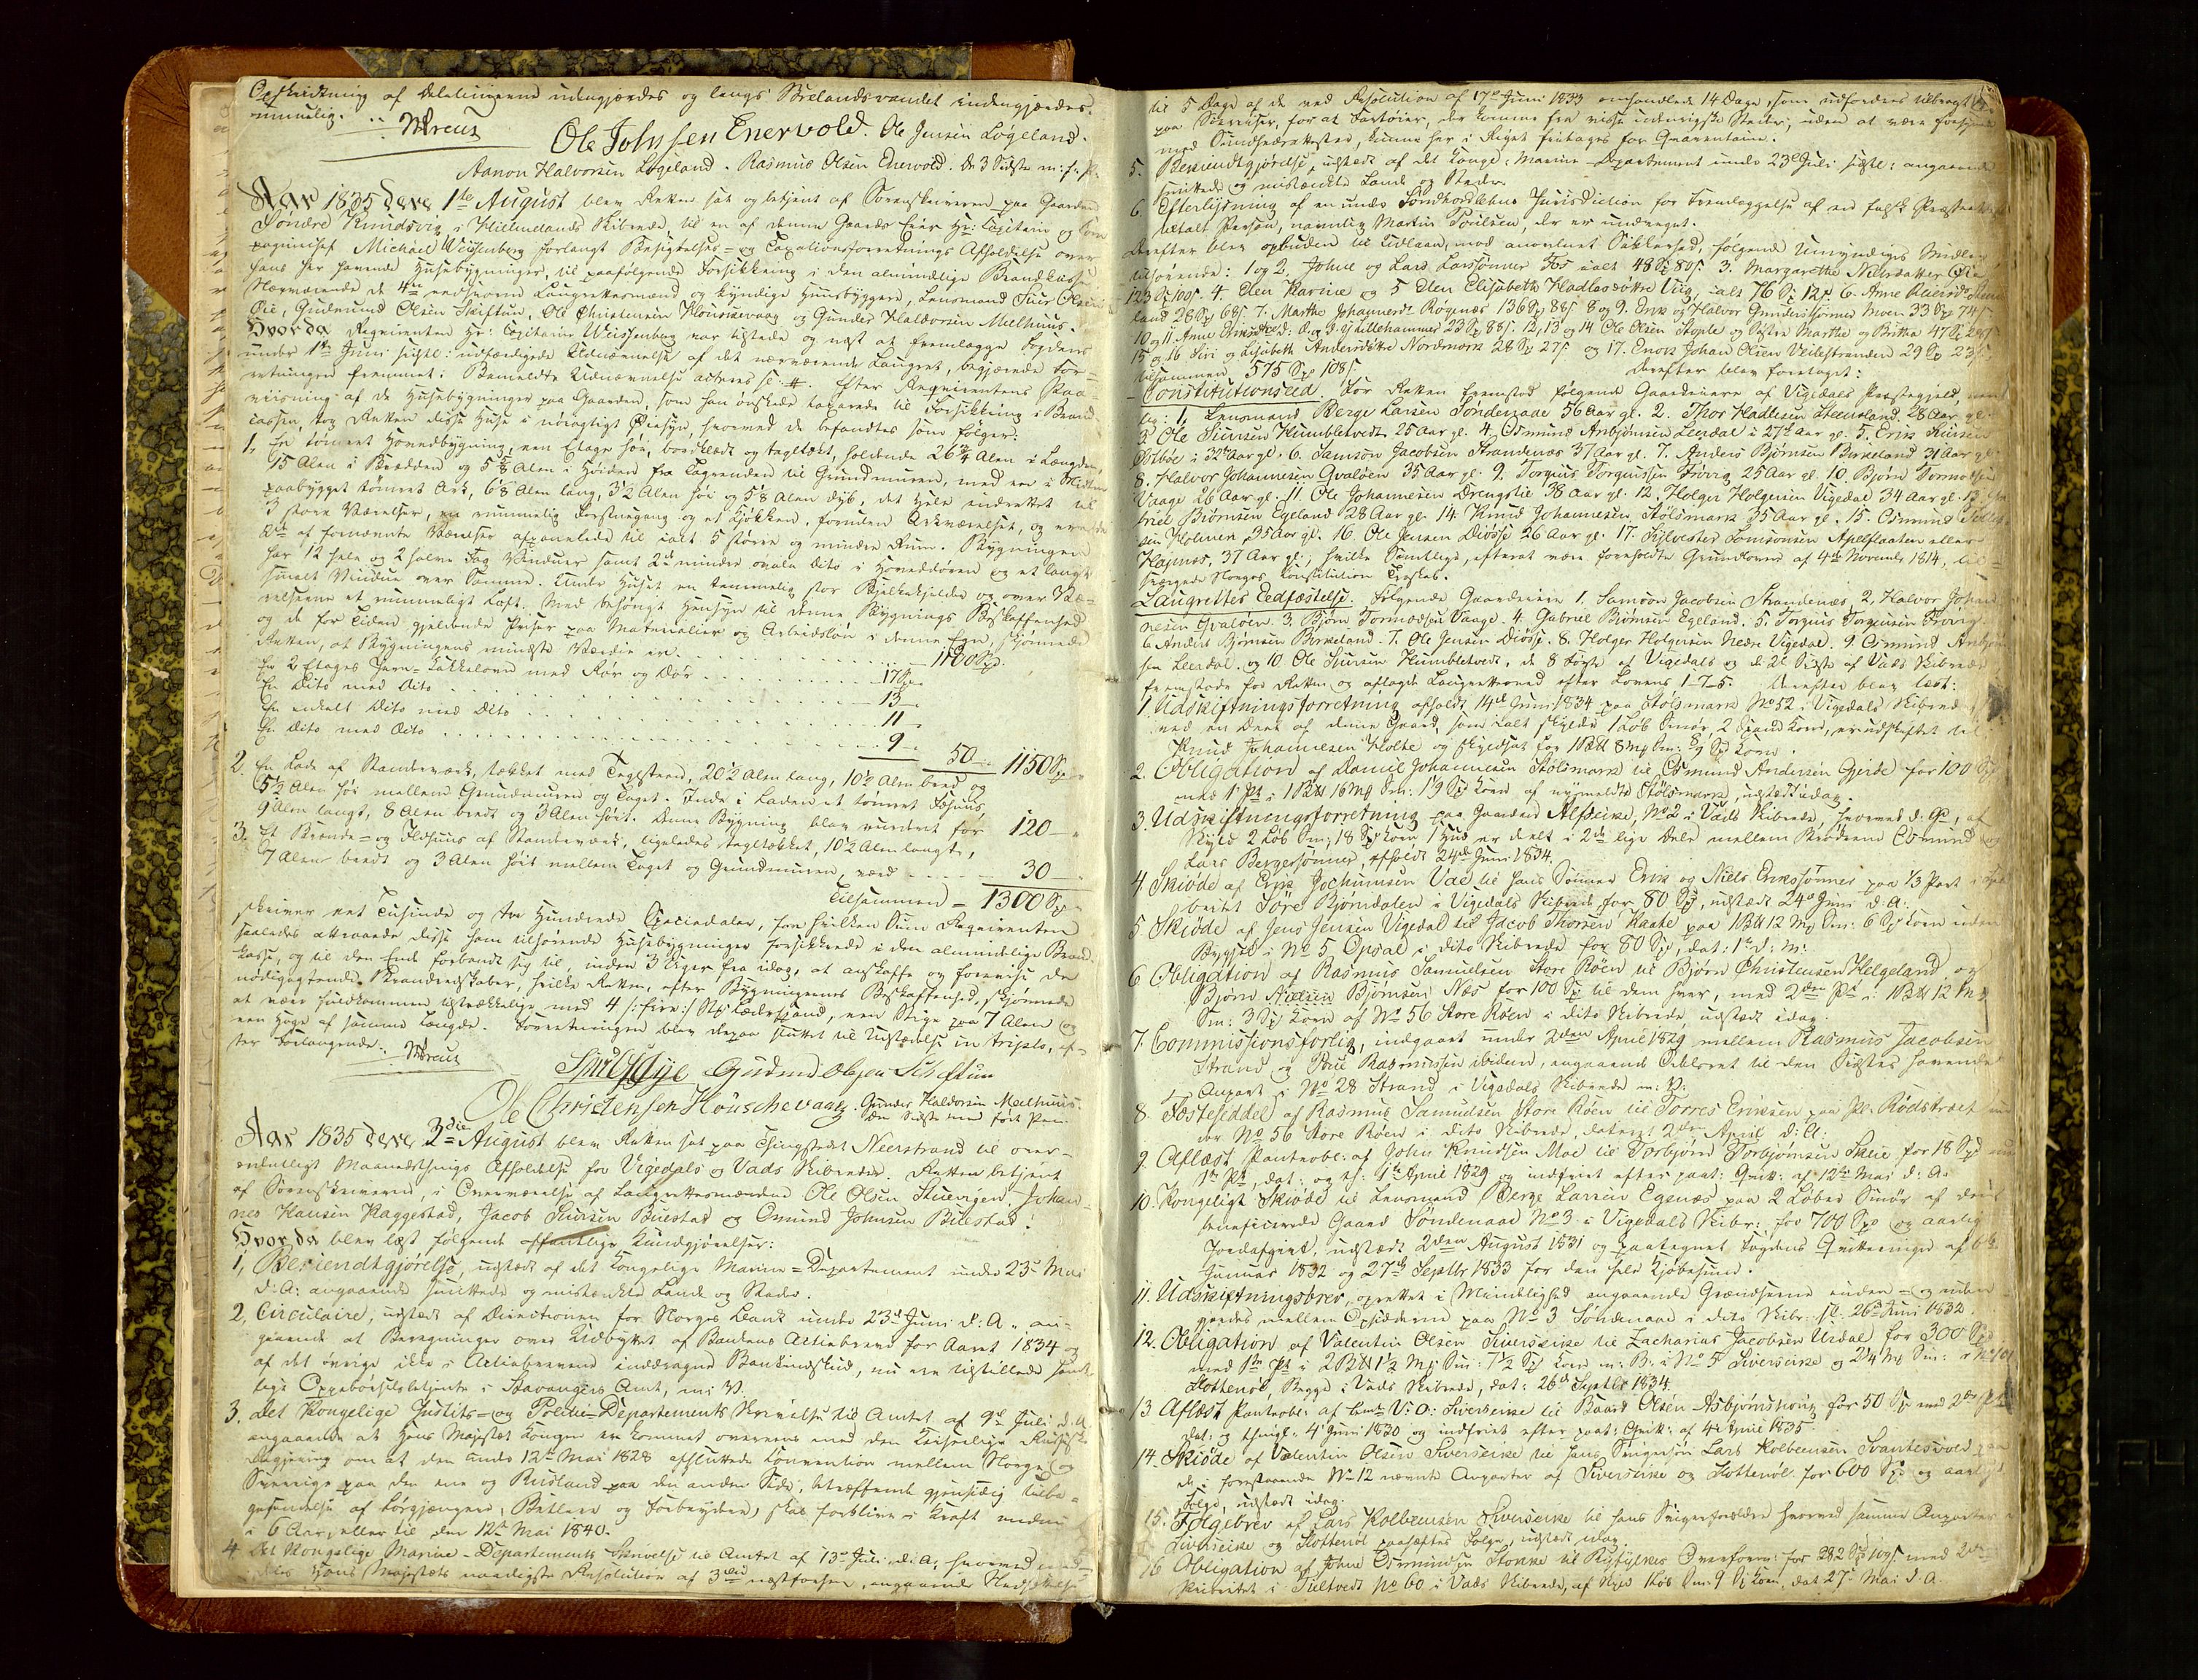 Opskiftning af Delelinierne udengjerdes og langs Birlandsvandet indengjerdes
nemmelig. MKreus
Ole Johnsen Enervold. Ole Jensen Løgeland.
Aanon Halvorsen Løgeland. Rasmus Olsen Enervold. De 3 Sidste m: f. P.
Aar 1835 den 1ste August blev Retten sat og betjent af Sorenskriveren paa Gaarden
Søndre Knudsvig i Hetlands Skibrede, til en af denne Gaards Eier Hr: Capitain og Com-
pagnichef Michael Weissenberg forlangt Besigtelses- og Taxationsforretnings Afholdelse over
hans her havende Husebygninger, til paafølgende Forsikkring i den almindelige Brandkasse.
Nærværende de 4re eedsvorne Laugrettesmænd og kyndige Huusbyggere, Lensmand Siur Olsen
Øie, Gudmund Olsen Skiftun, Ole Christensen Houskevaag og Gunder Haldorsen Melhuus.
Hvorda Reqvirenten Hr: Capitain Weissenberg var tilstede og næst at fremlægge Fogdens
under 1ste Juni sidstl: udfærdigede Udnævnelse af det nærværende Laugret, begjærede For-
retningen fremmet: Bemeldte Udnævnelse acteres sl: #. Efter Reqvirentens Paa-
viisning af de Husebygninger paa Gaarden, som han ønskede taxerede til Forsikkring i Brand-
cassen, tog Retten disse Huse i nøiagtigt Øiesyn, hvorved de befandtes som følger:
1, En tømret Hovedbygning, een Etage høi, bordklædt og tagltækt, holdende 26¾ Alen i Længden,
15 Alen i Bredden og 5⅝ Alen i Høiden fra Tagrenden til Grundmuren, med een i Midten
paabygget tømret Ark, 6⅛ Alen lang, 3½ Alen høi og 5⅛ Alen dyb, det Hele indrettet til
3 store Værelser, en rummelig Forstuegang og et Kjøkken, foruden Arkværelset, og
at fornævnte Værelser afpanelede til ialt 5 større og mindre Rum. Bygningen
har 12 hele og 2 halve Fag Vinduer samt 2de mindre ovale dito i Hoveddøren og et langt
smalt Vindue over Samme. Under Huset en temmelig stor Bjelkekjelder og over Væ-
relserne et rummeligt Loft. Med behørigt Hensyn til denne Bygnings Beskaffenhed
og de for Tiden gjeldende Priser paa Materialier og Arbeidsløn i denne Egn, skjønnede
Retten, at Bygningens mindste Værdie er . . . . 1100 Spd.
En 2 Etages Jern-Kakkelovn med Rør og Dør . . . . 17 Spd
En dito med dito . . . . 13 "
En enkelt dito med dito . . . . 11 "
En dito med dito . . . . 9 "
50 " 1150 Sp
2. En Lade af Standerværk, tækket med Taglsteen, 20½ Alen lang, 10½ Alen bred og
5½ Alen høi mellem Grundmuren og Taget. Inde i Laden et tømret Fæhuus,
9 Alen langt, 8 Alen bredt og 3 Alen høit. Denne Bygning blev vurderet for 120 "
3. Et Brænde- og Ildhuus af Standerværk, ligeledes tagltækket, 10½ Alen langt,
7 Alen bredt og 3 Alen høit mellem Taget og Grundmuren, værd . . . . 30 "
Tilsammen = 1300 Sp
skriver eet Tusinde og tre Hundrede Speciedaler, for hvilken Sum Reqvirenten
saaledes attraaede disse ham tilhørende Husebygninger forsikkrede i den almindelige Brand-
kasse, og til den Ende forbandt sig til, inden 3 Uger fra idag, at anskaffe og forevise de
nødigagtende Brandredskaber, hvilke Retten, efter Bygningernes Beskaffenhed, skjønnede
at være fuldkommen tilstrækkelige med 4 /: fire :/ Stk Læderspand, een Stige paa 7 Alen og
een Hage af samme Længde. Forretningen blev derpaa sluttet til Udstædelse in triplo, ef-
ter Forlangende. MKreus
Siur O Øye Gudmd Olsen Schiftun
Ole Christensen Houschevaag. Gunder Haldorsen Melhuus.
Den Sidste med ført Pen.
Aar 1835 den 3die August blev Retten sat paa Thingstedet Neerstrand til over-
ordentligt Maanedsthings Afholdelse for Vigedals og Vads Skibreder. Retten betjent
af Sorenskriveren, i Overværelse af Laugrettesmændene Ole Olsen Stuevigen, Johan-
nes Hansen Haggestad, Jacob Siursen Buestad og Omund Johnsen Buestad.
Hvorda blev læst følgende offentlige Kundgjørelser:
1, Bekiendtgjørelse, udstædt af det kongelige Marine-Departement under 23de Mai
d: A: angaaende smittede og mistænkte Lande og Stæder.
2, Circulaire, udstædt af Directionen for Norges Bank under 23de Juni d: A. an-
gaaende at Beregninger over Udbyttet af Bankens Actiebreve for Aaret 1834 og
af det øvrige ikke i Actiebrevene inddragne Bankindskud, nu ere tilstillede samt-
lige Oppebørselsbetjente i Stavangers Amt, m: V.
3. Det Kongelige Justits- og Politie-Departements Skrivelse til Amtet af 9de Juli d: A.
angaaende at Hans Majestæt Kongen er kommet overeens med den Keiserlige Russiske
Regjering om at den under 12te Mai 1828 afsluttede Convention mellem Norge og
Sverrige paa den ene og Rusland paa den anden Side, betræffende gjensidig tilba-
gesendelse af Løsgjængere, Betlere og Forbrydere, skal forblive i Kraft endnu
i 6 Aar, eller til den 12te Mai 1840.
4. Det Kongelige Marine-Departements Skrivelse til Amtet af 13de Juli d: A, hvorved med-
deles Hans Majestæts naadigste Resolution af 3die næstforhen, angaaende Nedsættelse
til 5 Dage af de ved Resolution af 17de Juni 1833 omhandlede 14 Dage, som udfordres tilbragt
paa Søereiser, for at Fartøier, der komme fra visse udenrigske Steder, uden at være forsynede
med Sundhedsattester, kunne her i Riget fritages for Quarantaine.
5. Bekiendtgjørelse, udstædt af det Konge: Marine-Departement under 23de Juli sidstl: angaaende
smittede og mistænkte Lande og Stæder.
6. Efterlysning af en under Søndhordlehns Jurisdiction for Fremlæggelse af en falsk Præsteattest
Person, navnlig Martin Poulsen, der er undveget.
Derefter blev opbuden til Udlaan, mod anordnet Sikkerhed, følgende Umyndiges Midler
tilhørende: 1 og 2. Johne og Lars Larssønner Fos ialt 48 Sp 80 s. 3. Margarethe Nilsdatter
123 Sp 100 s. 4. Elen Karine og 5 Elen Elisabeth Hadlesdøttre Viig, ialt 76 Sp 12 s. 6. Anne
land 28 Sp 68 s. 7. Marthe Johannesd: Røgenæs 136 Sp 88 s. 8 og 9. Erik og Halvor Gunderssønner Moen 33 Sp 74 s.
10 og 11. Anne 23 Sp 88 s. 12, 13 og 14 Ole Olsen Stople og Søstre Marthe og Britha 47 Sp
15 og 16 Siri og Lisabeth Andersdøttre Nordmork 28 Sp 27 s. og 17. Enok Johan Olsen Veilestranden 29 Sp 23 s.
tilsammen 575 Sp 108 s. Derefter blev foretaget:
Constitutionseed. For Retten fremstod følgende Gaardeiere af Vigedals Præstegjeld, navn-
lig: 1, Lensmand Berge Larsen Søndenaae 56 Aar gl. 2. Thor Hadlesen Steensland, 28 Aar gl.
3 Ole Siursen Humbletvedt 25 Aar gl. 4. Osmund Anbjørnsen Leerdal i 27de Aar gl. 5. Erik Siursen
Østboe i 32te Aar gl. 6. Samson Jacobsen Strandenæs 37 Aar gl. 7. Anders Bjørnsen Birkeland 31 Aar gl.
8. Halvor Johannesen Qvaløen 35 Aar gl. 9. Torgius Torgiussen Frøvig 25 Aar gl. 10. Bjørn Tormodsen
Vaage 26 Aar gl. 11. Ole Johannesen Drengstie 38 Aar gl. 12. Holger Holgersen Vigedal 34 Aar gl. 13. Ga-
briel Bjørnsen Egeland 28 Aar gl. 14. Knud Johannesen Stølsmark 35 Aar gl. 15. Osmund
sen Holmen, 25 Aar gl. 16. Ole Jensen Diøsse 26 Aar gl. 17. Sylvester Samsonsen Apelstaaten eller
Høgenæs, 37 Aar gl.; hvilke Samtlige, efterat være foreholdte Grundloven af 4de Novembr 1814, til-
svergede Norges Constitution Troskab.
Laugrettes Eedfæstelse. Følgende Gaardeiere 1. Samson Jacobsen Strandenæs, 2, Halvor Johan-
nesen Qvaløen. 3. Bjørn Tormodsen Vaage. 4. Gabriel Bjørnsen Egeland. 5. Torgius Torgiussen Frøvig.
6. Anders Bjørnsen Birkeland. 7. Ole Jensen Diøsse. 8. Holger Holgersen Nedre Vigedal. 9. Osmund Anbjørn-
sen Leerdal. og 10 Ole Siursen Humbletvedt, de 8 Første af Vigedals og de 2de Sidste af Vads Skibrede
fremstode for Retten og aflagde Laugretteseed efter Lovens 1-7-5. Derefter blev læst:
1. Udskiftningsforretning afholdt 14de Juni 1834 paa Stølsmark No 52 i Vigedals Skibrede,
ved en Deel af denne Gaard, som ialt skylder 1 Løb Smør, 2 Spand Korn, er udskiftet til
Knud Johannesen Holte og skyldsat for 1 Pd 8 mk Sm:
2. Obligation af Daniel Johannesen Stølsmark til Osmund Andersen Gjerde for 100 Sp
med 1ste Pt: i 1 Pd 16 mk Sm: 1⅑ Sp Korn af nysmeldte Stølsmark, udstædt idag.
3. Udskiftningsforretning paa Gaarden Alfseike, No 2 i Vads Skibrede, hvorved d: G:, af
Skyld 2 Løb Sm; 18 Sp Korn, 1 Hud er deelt i 2de lige Dele mellem Brødrene Osmund og
Lars Bergersønner, afholdt 24de Juni 1834.
4. Skiøde af Erik Jochumsen Vae til hans Sønner Erik og Niels Erikssønner paa 1/3 Part i
bruket Søre Bjørndalen i Vigedals Skibrede for 80 Sp, udstædt 24de Juni d: A:.
5 Skiøde af Jens Jensen Vigedal til Jacob Thorsen Haahe paa 1 Pd 12 Mk Sm: 6 Sp Korn uden
Bygsel i No 5 Opsal i dito Skibrede for 80 Sp, dat: 1ste d: M:
6. Obligation af Rasmus Samuelsen Store Røen til Bjørn Christensen Helgeland, og
Bjørn Nielsen Bjørnsen Næs for 100 Sp til dem hver, med 2den Pt i 1 Pd 12 mk
Sm: 3 Sp Korn af No 56 Store Røen i dito Skibrede, udstædt idag.
7. Commissionsforlig, indgaaet under 2den April 1829 mellem Rasmus Jacobsen
Strand og Poul Rasmussen ibidem, angaaende Odelsret til den Sidstes havende
Anpart i No 28 Strand i Vigedals Skibrede m: V:
8. Fæsteseddel af Rasmus Samuelsen Store Røen til Torres Eriksen paa Pl. Rødstræt un-
der No 56 Store Røen i dito Skibrede, dateret 2den April d: A:
9. Aflæst Panteobl: af John Knudsen Mæe til Torbjørn Torbjørnsen Skeie for 18 Sp
1ste Pt, dat: og th: 1ste April 1829 og indfriet efter paat: Qvitt: af 12te Mai d: A:
10. Kongeligt Skiøde til Lensmand Berge Larsen Egenæs paa 2 Løber Smør af den
beneficerede Gaard Søndenaae No 3 i Vigedals Skibr: for 700 Spd og aarlig
Jordafgivt, udstædt 2den August 1831 og paategnet Fogdens Qvitteringer af 6te
Januar 1832 og 27de Septbr 1833 for den hele Kjøbesum.
11. Udskiftningsbrev, oprettet i Mindelighed angaaende Grændserne inden- og uden-
gjerdes mellem Opsidderne paa No 3 Søndenaae i dito Skibr: sl: 26de Juni 1832.
12. Obligation af Valentin Olsen Siverseike til Zacharias Jacobsen Ursdal for 300 Sp
med 1ste Pt i 2 Pd 1½ Mk Sm: 7½ Sp Korn m: B: i No 5 Siverseike og 2¼ Mk Sm: i No 101
Slottenøl, Begge i Vads Skibrede, dat: 26de Septbr 1834.
13. Aflæst Panteobl: af bemte V: O: Siverseike til Baard Olsen Asbjørnsteig for 50 Sp med 2den Pt
dat: og thingl: 4de Juni 1830 og indfriet efter paat: Qvitt: af 4de April 1835.
14. Skiøde af Valentin Olsen Siverseike til hans Svigersøn Lars Kolbeensen Svantesvold paa
de i forestaaende No 12 nævnte Anparter af Siverseike og Slottenøl for 600 Sp og aarligt
Følge, udstædt idag.
15. Følgebrev af Lars Kolbeensen Siverseike til hans Svigerforældre hvorved samme Anparter i
Siverseike og Slottenøl paahæftes Følge, udstædt idag.
16 Obligation af John Osmundsen Stokke til Ryfylkes Overform: for 282 Sp 109 s. med 2den
Prioritet i Tueltvedt No 60 i Vads Skibrede, af Skyld 1 Løb Sm: 9 Sp Korn, dat 27de Mai d: A.